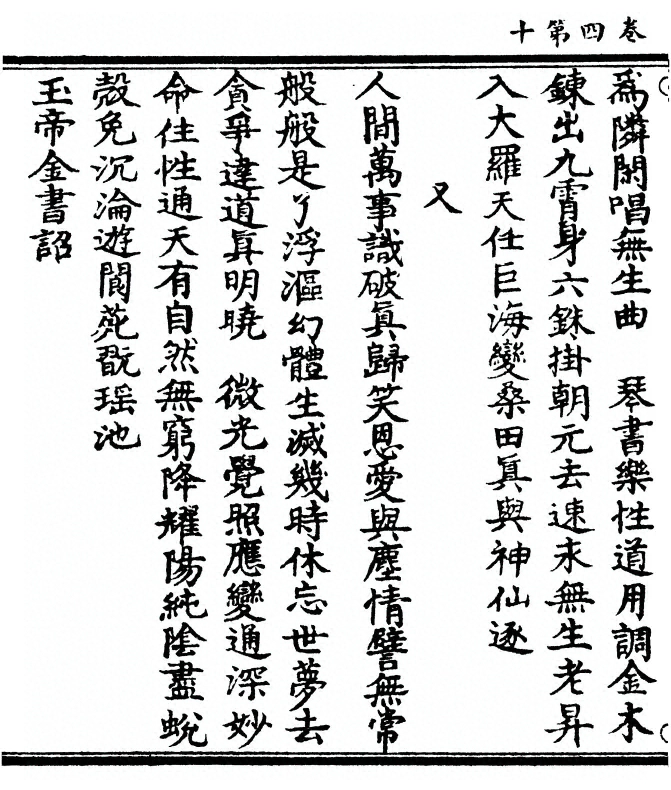 卷四第十
為隣閑唱無生曲　琴書樂性道用調金木
鍊出九霄身六銖掛朝元去速求無生老昇
入大羅天任巨海變桑田眞與神仙逐
又
人間萬事識破眞歸笑恩愛與塵情譬無常
般般是了浮漚幻體生滅幾時休忘世夢去
貪爭違道眞明曉　微光覺照應變通深妙
命住性通天有自然無窮降耀陽純陰盡蛻
殼免沉淪遊閬苑翫瑶池
玉帝金書詔